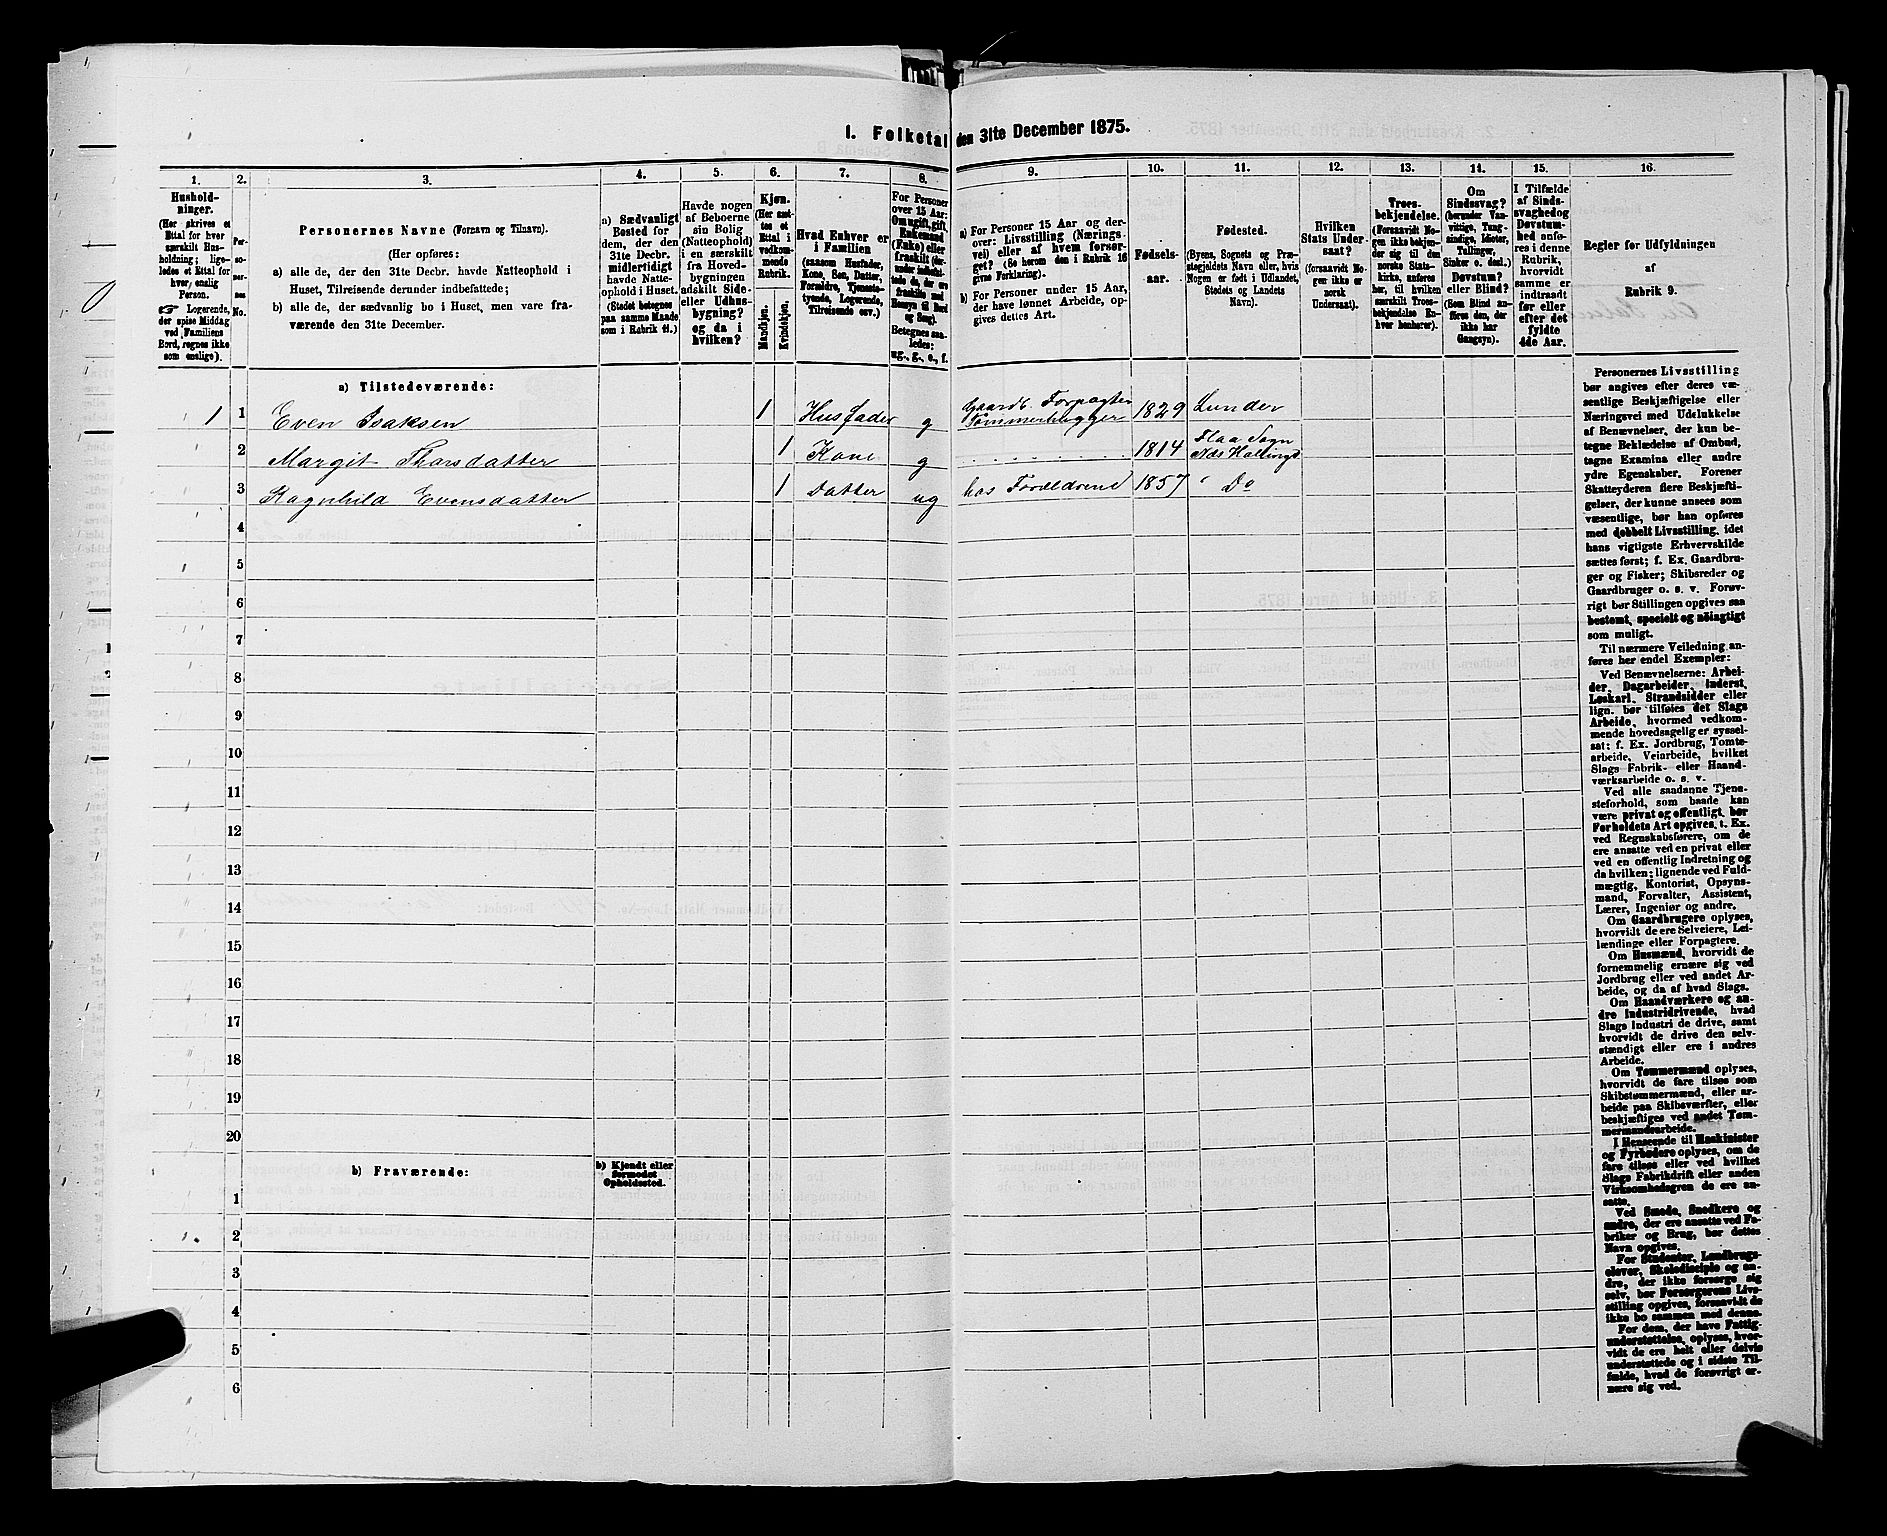 1. Folketal den 31te December 1875.
1. 2. 3. 4. 5. 6. 7. 8. 9. 10. 11. 12. 13. 14. 15. 16.
Hushold-
ninger.
(Her skrives et
Ettal for hver
særskilt Hus-
holdning; lige-
ledes et Ettal for
hver enslig
Person.
Logerende,
der spise Middag
ved Familiens
Bord, regnes ikke
som enslige).
Per-
so-
ner-
nes
No.
Personernes Navne (Fornavn og Tilnavn).
(Her opføres:
a) alle de, der den 31te Decbr. havde Natteophold i
Huset, Tilreisende derunder indbefattede;
b) alle de, der sædvanlig bo i Huset, men vare fra-
værende den 31te December.
a) Sædvanligt
Bosted for
dem, der den
31te Decbr.
midlertidigt
havde Natte-
ophold i Huset.
(Stedet betegnes
paa samme Maade
som i Rubrik 11.)
Havde nogen
af Beboerne
sin Bolig
(Natteophold)
i en særskilt
fra Hoved-
bygningen
adskilt Side-
eller Udhus-
bygning?
og da i
hvilken?
Kjøn.
(Her sæt-
tes et
Ettal i
vedkom-
mende
Rubrik.
Mandkjøn.
Kvindekjøn.
Hvad Enhver er
i Familien
(saasom Husfader,
Kone, Søn, Datter,
Forældre, Tjeneste-
tyende, Logerende,
Tilreisende osv.)
For Personer
over 15 Aar:
Om ugift, gift,
Enkemand
(Enke) eller
fraskilt
Betegnes saa-
ledes:
ug., g., e., f.
a) For Personer 15 Aar og der-
over: Livsstilling (Nærings-
vei) eller af hvem forsør-
get? (Se herom den i Rubrik 16
givne Forklaring).
b) For Personer under 15 Aar,
der have lønnet Arbeide, op-
gives dettes Art.
Fødsels-
aar.
Fødested.
(Byens, Sognets og Præ-
stegjeldets Navn eller, hvis
Nogen er født i Udlandet,
Stedets og Landets
Navn).
Hvilken
Stats Under-
saat?
(forsaavidt No-
gen ikke er
norsk
Undersaat).
Troes-
bekjendelse.
(Forsaavidt No-
gen ikke bekjen-
der sig til den
norske Stats-
kirke, anføres
her, til hvilken
særskilt Troes-
bekjendelse En-
hver henhører).
Om
Sindssvag?
(herunder Van-
vittige, Tung-
sindige, Idioter,
Tullinger,
Sinker o. desl.)
Døvstum?
eller Blind?
(Som Blind an-
føres den, der
ikke har
Gangsyn).
I Tilfælde
af Sinds-
svaghed og
Døvstum-
hed anfø-
res i denne
Rubrik,
hvorvidt
samme er
indtraadt
før eller
efter det
fyldte
4de Aar.
Regler for Udfyldningen
af
Rubrik 9.
a) Tilstedeværende:
1 1 Even Isaksen 1 Husfader g Gaardb. Forpagter Tømmerhugger 1829 Lunder
2 Margit Thorsdatter 1 Kone g . . . . . . . . . . 1814 Flaa Sogn Næs Hallingd
3 Ragnhild Evensdatter 1 Datter ug hos Forældrene 1857 " Do
4
5
6
7
8
9
10
11
12
13
14
15
16
17
18
19
20
b) Fraværende:
b) Kjendt eller
formodet
Opholdssted.
1
2
3
4
5
6
Personernes Livsstilling
bør angives efter deres væ-
sentlige Beskjæftigelse eller
Næringsvei med Udelukkelse
af Benævnelser, der kun be-
tegne Beklædelse af Ombud,
tagne Examina eller andre
ydre Egenskaber. Forener
Skatteyderen flere Beskjæfti-
gelser, der kunne ansees som
væsentlige, bør han opføres
med dobbelt Livsstilling, idet
hans vigtigste Erhvervskilde
sættes først; f. Ex. Gaardbru-
ger og Fisker; Skibsreder og
Gaardbruger o. s. v. Forøv-
rigt bør Stillingen opgives saa
bestemt, specielt og nøiagtigt
som muligt.
Til nærmere Veiledning an-
føres her endel Exempler:
Ved Benævnelserne: Arbei-
der, Dagarbeider, Inderst,
Løskarl, Strandsidder eller
lign. bør tilføies det Slags
Arbeide, hvormed vedkom-
mende hovedsagelig er syssel-
sat; f. Ex. Jordbrug, Tomte-
arbeide, Veiarbeide, hvilket
Slags Fabrik- eller Haand-
værksarbeide o. s. v.
Ved alle saadanne Tjene-
steforhold, som baade kan
være privat og offentligt, bør
Forholdets Art opgives, t. Ex.
ved Regnskabsførere, om de
ere ansatte ved en privat eller
ved en offentlig Indretning og
da hvilken; lignende ved Fuld-
mægtig, Kontorist, Opsyns-
mand, Forvalter, Assistent,
Lærer, Ingeniør og andre.
Om Gaardbrugere oplyses,
hvorvidt de ere Selveiere, Lei-
lændinge eller Forpagtere.
Om Husmænd, hvorvidt de
fornemmelig ernære sig ved
Jordbrug eller ved andet Ar-
beide, og da af hvad Slags.
Om Haandværkere og an-
dre Industridrivende, hvad
Slags Industri de drive, samt
hvorvidt de drive den selv-
stændigt eller ere i andres
Arbeide.
Om Tømmermænd oplyses,
hvorvidt de fare tilsøs som
Skibstømmermænd, eller ar-
beide paa Skibsværfter, eller
beskjæftiges ved andet Tøm-
mermandsarbeide.
I Henseende til Maskinister
og Fyrbødere oplyses, om de
fare tilsøs eller ved hvilket
Slags Fabrikdrift eller anden
Virksomhedsgren de ere an-
satte.
Ved Smede, Snedkere og
andre, der ere ansatte ved Fa-
briker og Brug, bør dettes
Navn opgives.
For Studenter, Landbrugs-
elever, Skoledisciple og an-
dre, der ikke forsørge sig
selv, bør Forsørgerens Livs-
stilling opgives, forsaavidt de
ikke bo sammen med denne.
For dem, der have Fattig-
understøttelse, oplyses, hvor-
vidt de ere helt eller delvis
understøttede og i sidste Til-
fælde, hvad de forøvrigt er-
nære sig ved.